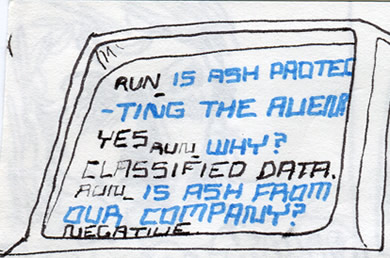 RUN_ IS ASH PROTEC
-TING THE ALIEN?
YES RUN_ WHY?
CLASSIFIED DATA.
RUN_ IS ASH FROM
OUR COMPANY?
NEGATIVE